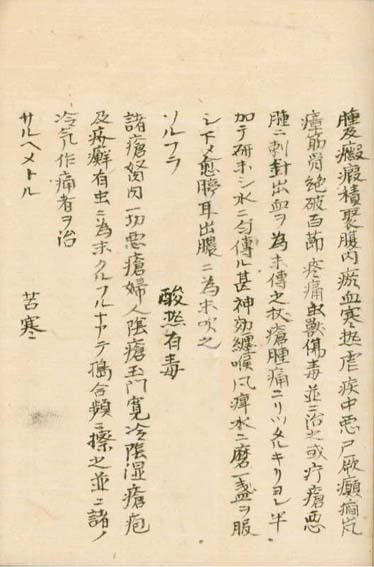 腫及癥瘕積聚腹内瘀血寒熱虐疾中悪尸厥癲癇嵐
瘴筋骨絶破百節疼痛虫獣傷毒並ニ治之或疔瘡悪
腫ニ刺針出血ヲ為末傳之杖瘡腫痛ニリツタルキリヨレ半
加テ研末シ水ニ匀傳ル甚神効纏喉風痺水ニ磨一盞ヲ服
シ下メ愈膿耳出膿ニ為末吹之
ソルフラ 酸熱有毒
諸瘡努肉一切悪瘡婦人陰瘡玉門寛冷陰湿瘡疱
及疥癬有虫ニ為末クルフルナヤテ搗合頻ニ擦之並ニ諸ノ
冷気作痛者ヲ治
サルヘメトル 苦寒